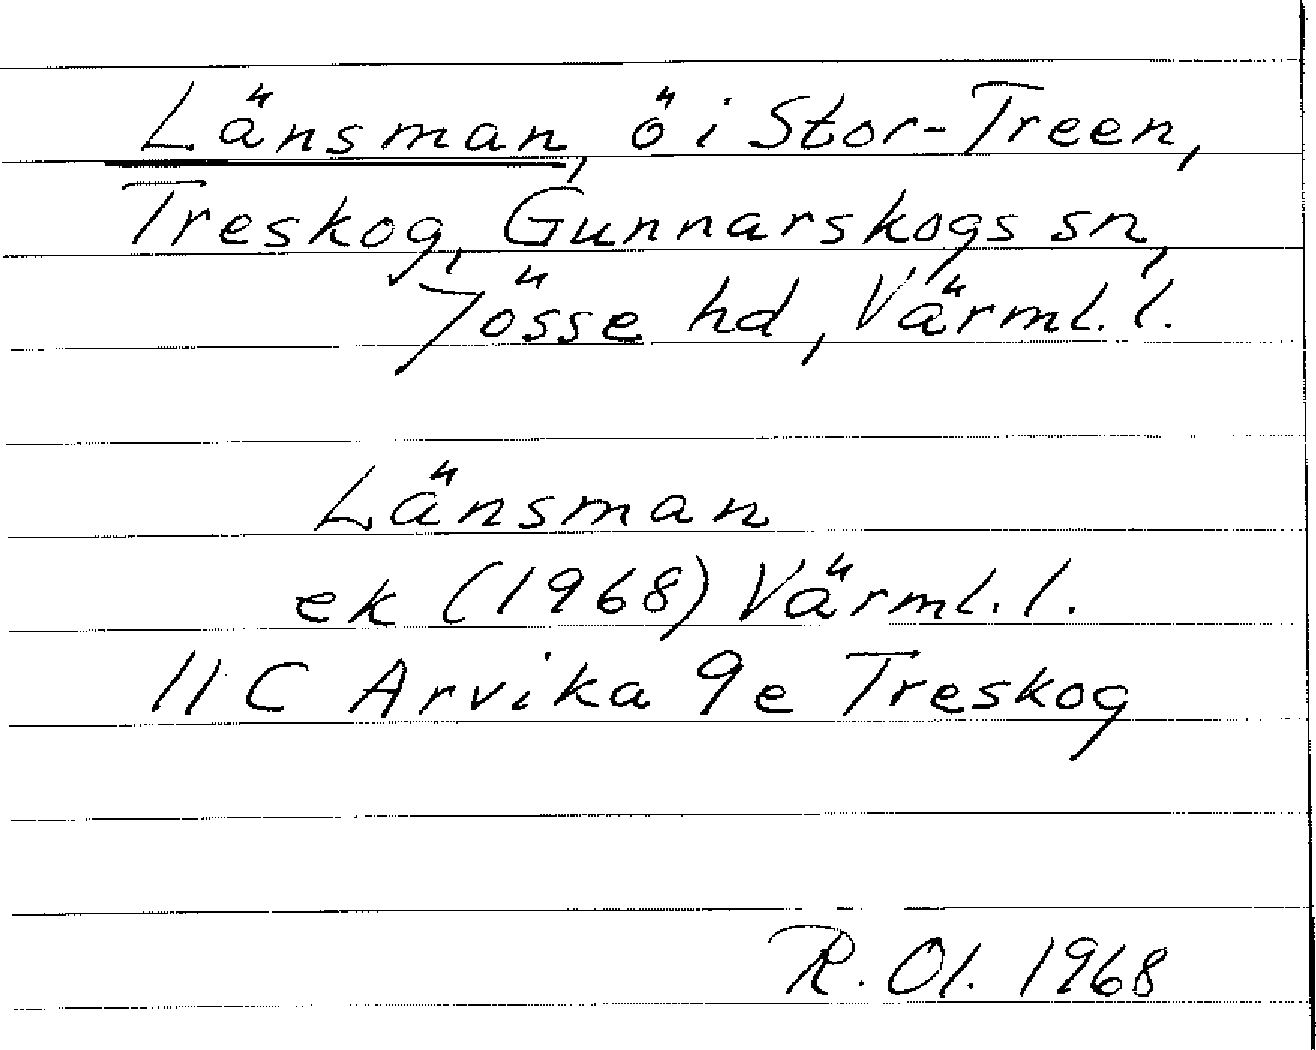 Länsman, ö i Stor-Treen,
Treskog, Gunnarskogs sn,
Jösse hd, Värml. l.
Länsman
ek (1968) Värml. l.
11 C Arvika 9e Treskog
R. Ol. 1968